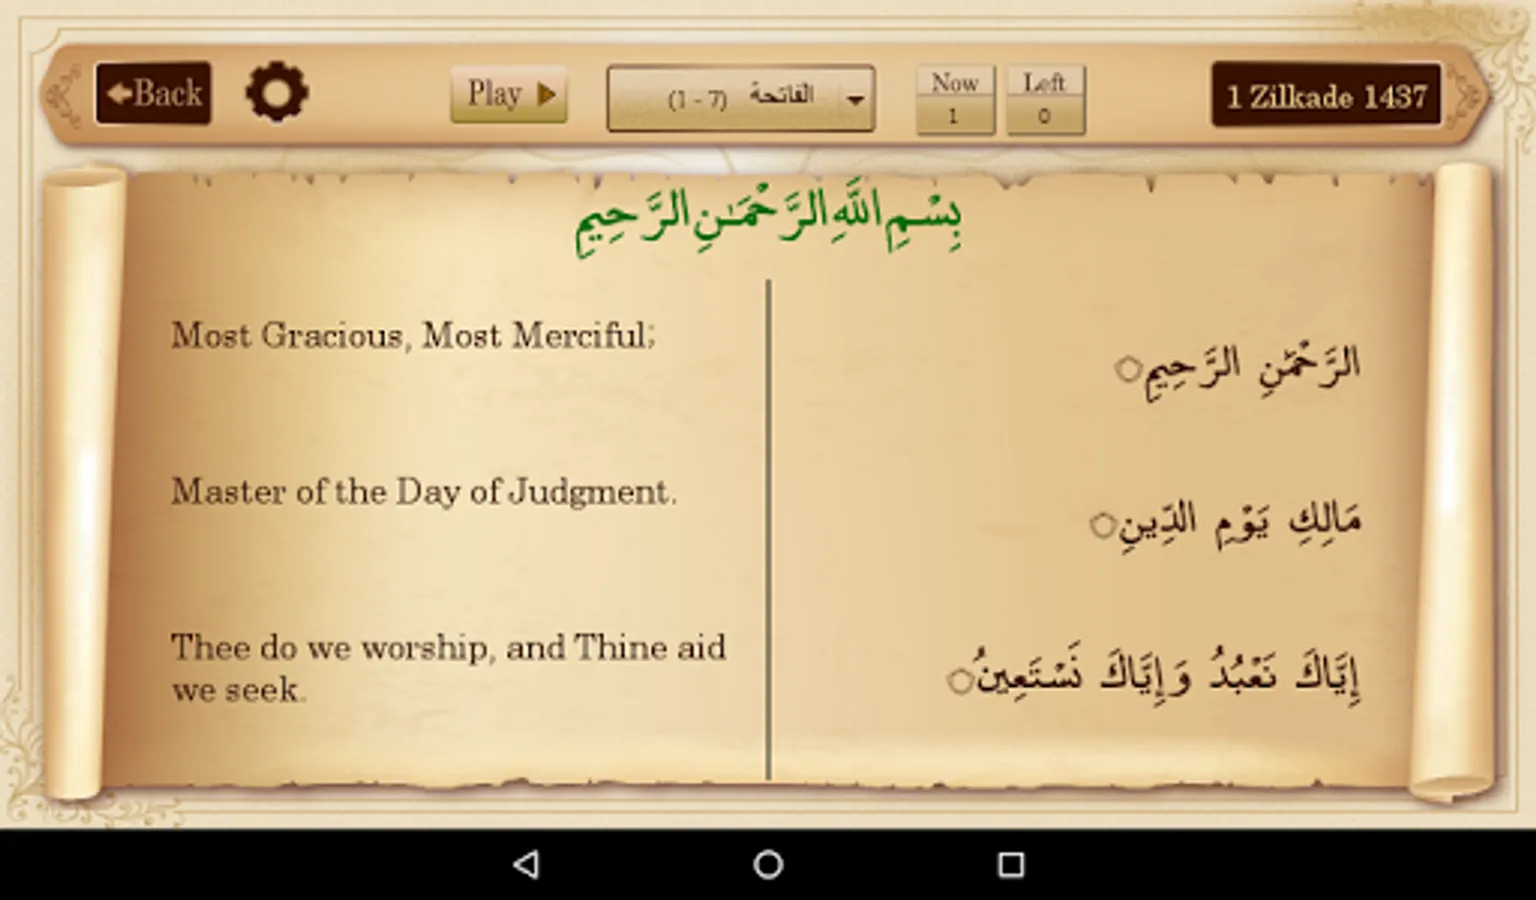 Back
Play
الفاتحة (1 - 7)
Now
1
Left
0
1 Zilkade 1437
بِسْمِ اللَّهِ الرَّحْمَـٰنِ الرَّحِيمِ
Most Gracious, Most Merciful;
الرَّحْمَٰنِ الرَّحِيمِ
Master of the Day of Judgment.
مَالِكِ يَوْمِ الدِّينِ
Thee do we worship, and Thine aid
we seek.
إِيَّاكَ نَعْبُدُ وَإِيَّاكَ نَسْتَعِينُ